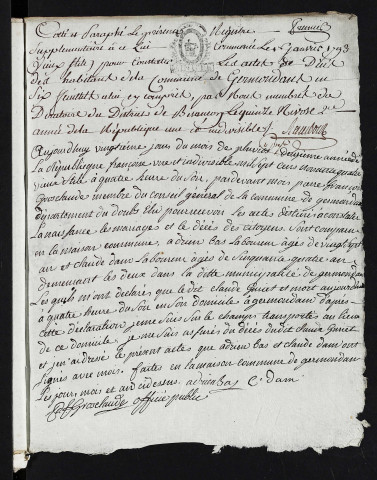 Cotté et Paraphé le présent Registre Premier
Supplementaire à ce Lui Commencé le janvier 1793
vieux stile pour Constater Les actes de Decès
des habitant de la Commune de Germondans en
Six feuillets celui cy compris, par Nous membre du
Directoire du District de le quinze Nivose 2e
année de la République une et indivisible
Aujourdhuy vingtieme jour du mois de pluviose deuxieme année de
La République francoise une et indivisible mil sept cens nonante quatre
vieux stile à quatre heure du soir, pardevant mois pierre françois
Grosclaude membre du conseil général de la commune de germondans
département du doubs élu pour recevoir les actes destiné a constater
La naissance le mariages et le décès des citoyens sont comparu
en la maison commune, adrien bas Laboureur âgés de vingt sept
ans et claude dam laboureur âgés de cinquante quatre ans
demeurant les deux dans la ditte municipalité de germondans
Les quels m'ont déclarés que le dit claude Guiet est mort aujourdhuy
à quatre heure du soir en son domicile à germondans d'après
cette déclaration je me suis sur le champs transportes au lieu
de ce domicile je me suis assurés du décès du dit claude Guiet
et j'en ai dressé le present actes que adrien bas et claude dam ont
Signés avec mois. faites en la maison commune de germondans
Les jour, mois et an cidessus. adrien bas C. dam
P f Grosclaude officié public